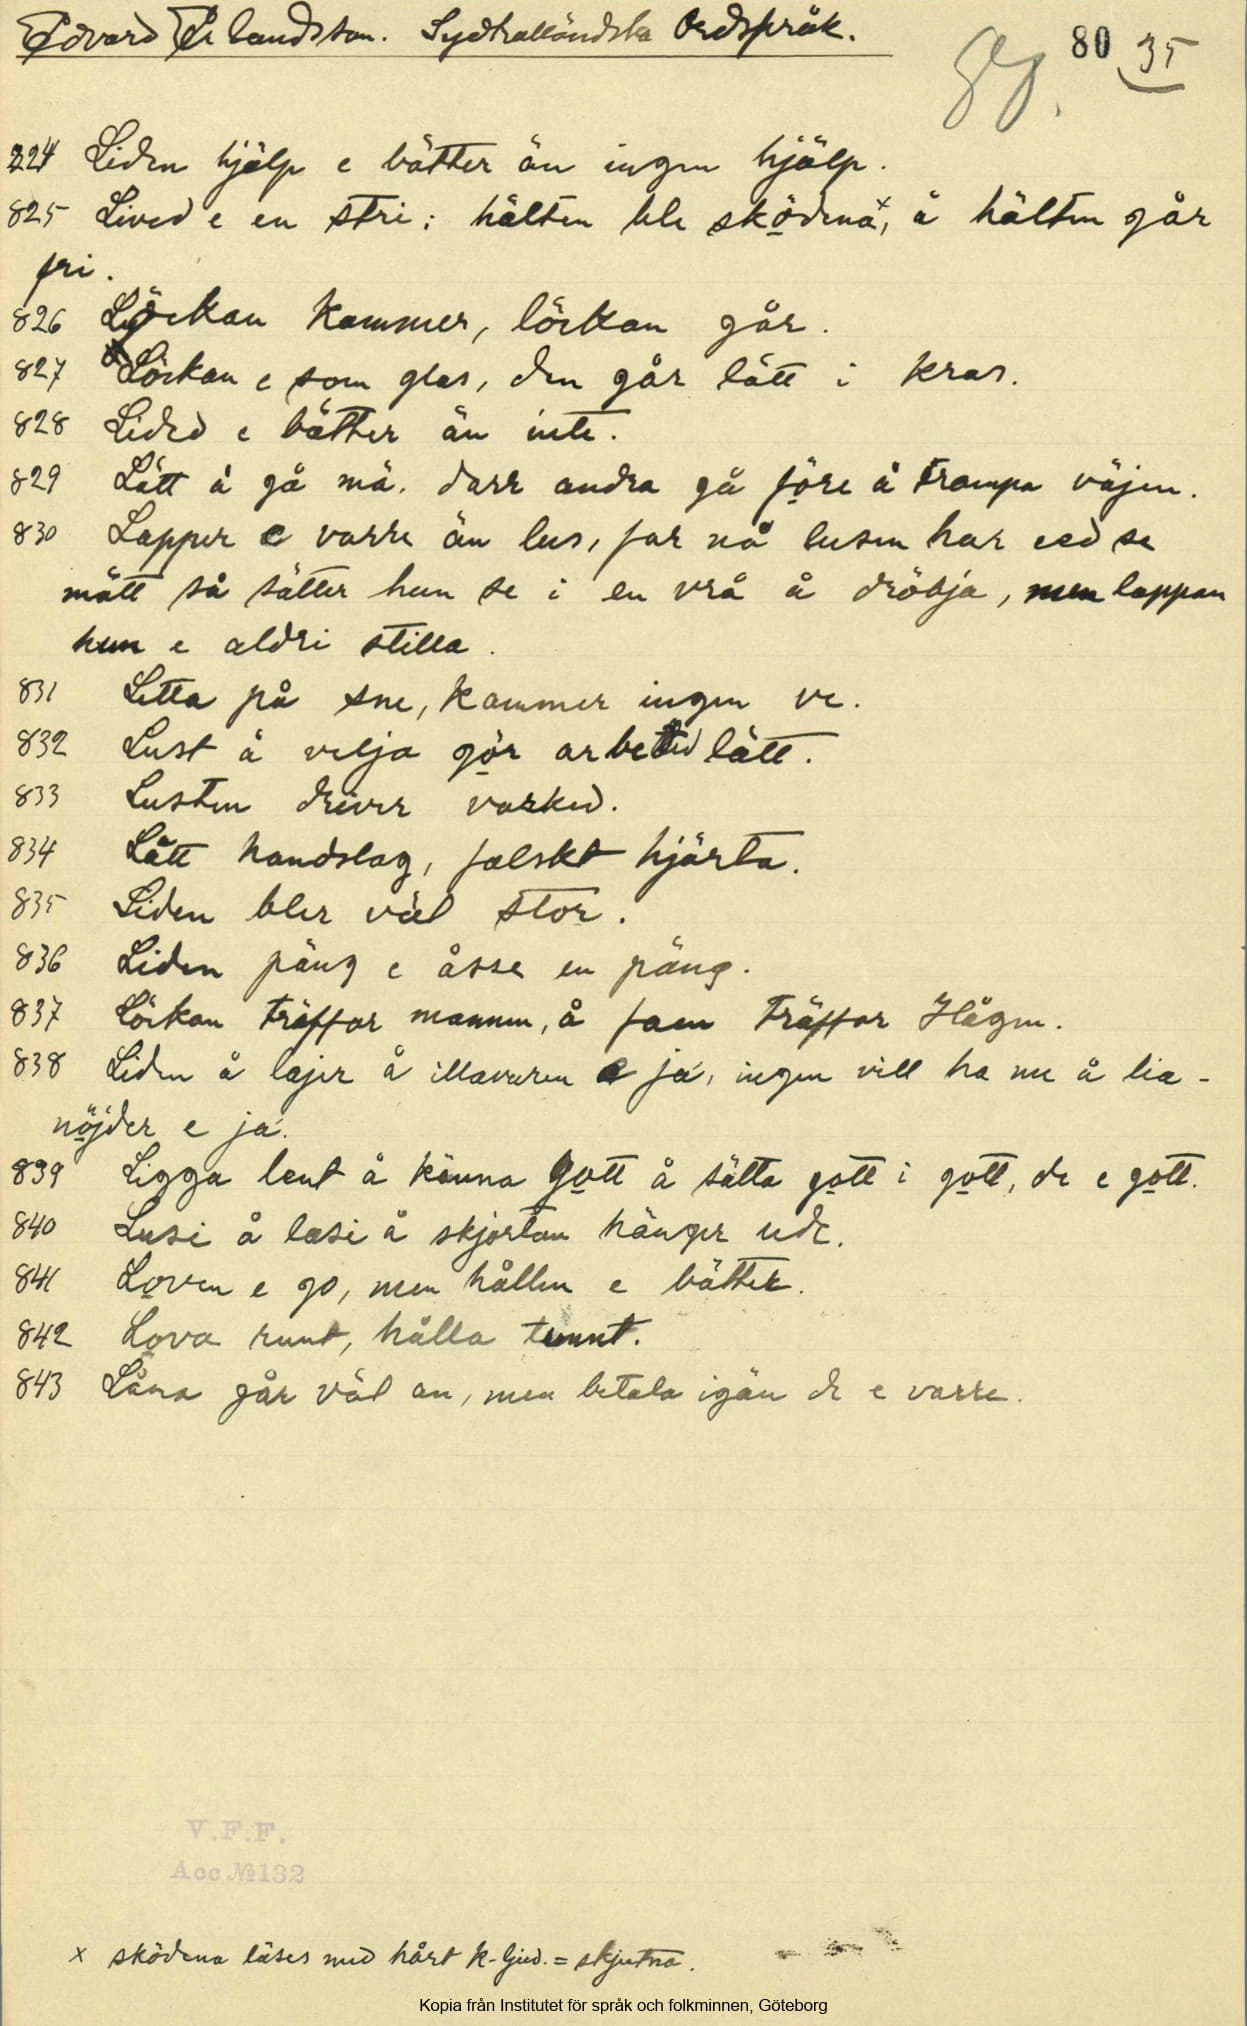 Edvard Erlandsson. Sydhalländska Ordspråk.
80 35
824 Liden hjälp e bätter än ingen hjälp.
825 Lived e en stri: hälten ble sködna x, å hälten går
fri.
826 Löckan kommer, löckan går.
827 Löckan e som glas, den går lätt i kras.
828 Lided e bätter än inte.
829 Lätt å gå mä. darr andra gå före å trampa väjen.
830 Lapper e varre än lus, for nå lusen har eed se
mätt så sätter hun se i en vrå å dröbja, men lappan
hun e aldri stilla.
831 Letta på sne, kommer ingen ve.
832 Lust å velja gör arbeted lätt.
833 Lusten driver varked.
834 Lätt handslag, falskt hjärta.
835 Liden bler väl stor.
836 Liden päng e åsse en päng.
837 Löckan träffar mannen, å faen träffar Hågen.
838 Liden å lajer å illavuren e ja, ingen vill ha me å lia-
nöjder e ja.
839 Ligga lent å känna gott å sätta gott i gott, de e gott.
840 Lusi å lasi å skjortan hänger ude.
841 Loven e go, men hållen e bätter.
842 Lova runt, hålla tunnt.
843 Låna går väl an, men betala igän de e varre.
V.F.F.
Acc №132
x sködna läses med hårt k-ljud. = skjutna.
Kopia från Institutet för språk och folkminnen, Göteborg